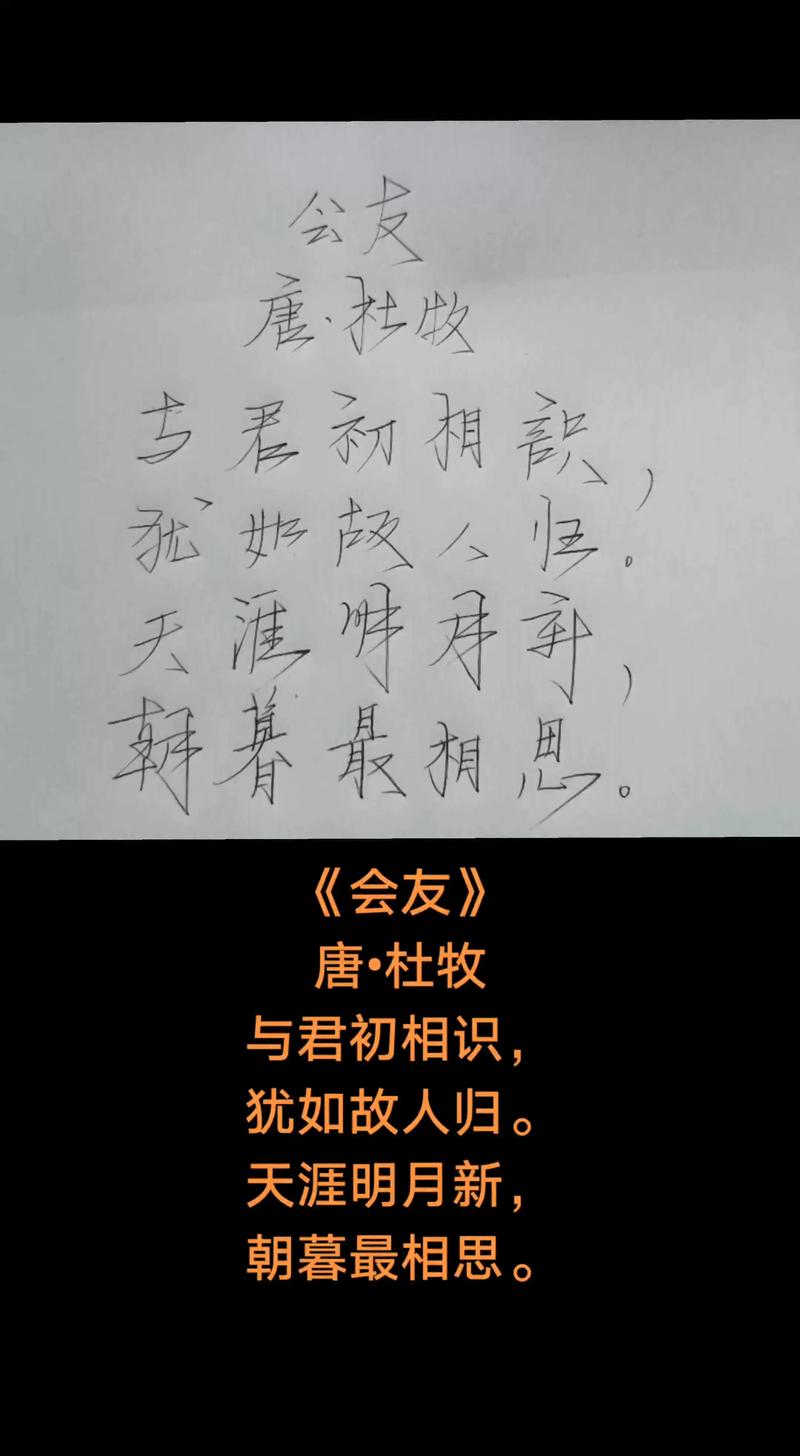 会友
唐·杜牧
与君初相识，
犹如故人归。
天涯明月新，
朝暮最相思。
《会友》
唐•杜牧
与君初相识，
犹如故人归。
天涯明月新，
朝暮最相思。